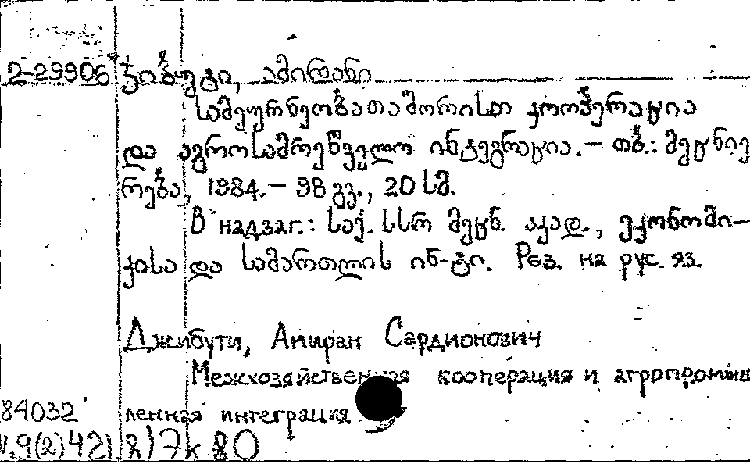 2-29906 ჯიბუტი, ამირანი
სამეურნეობათაშორისო კოოპერაცია
და აგროსამრეწველო ინტეგრაცია. – თბ.: მეცნიე
რება, 1984. – 98 გვ., 20 სმ.
В надзаг.: საქ. სსრ მეცნ. აკად., ეკონომი-
კისა და სამართლის ინ-ტი. Рез. на рус. яз.
Джибути, Амиран Сардионович
Межхозяйственная кооперация и агропромыш
84032 ленная интеграция